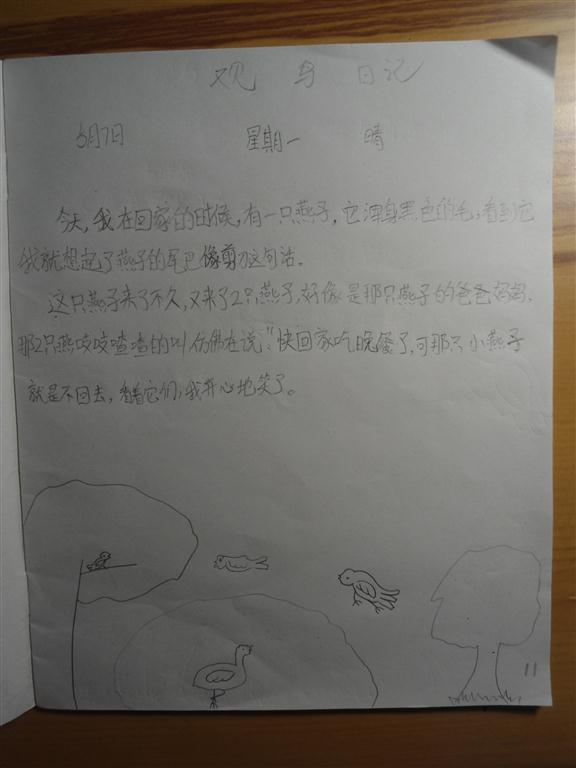 观鸟日记
6月7日 星期一 晴
今天,我在回家的时候,有一只燕子,它浑身黑色的毛,看到它
我就想起了燕子的尾巴像剪刀这句话.
这只燕子来了不久,又来了2只燕子,好像是那只燕子的爸爸妈妈.
那2只燕吱吱喳喳的叫仿佛在说"快回家吃晚餐了,可那只小燕子
就是不回去,看着它们,我开心地笑了。
11